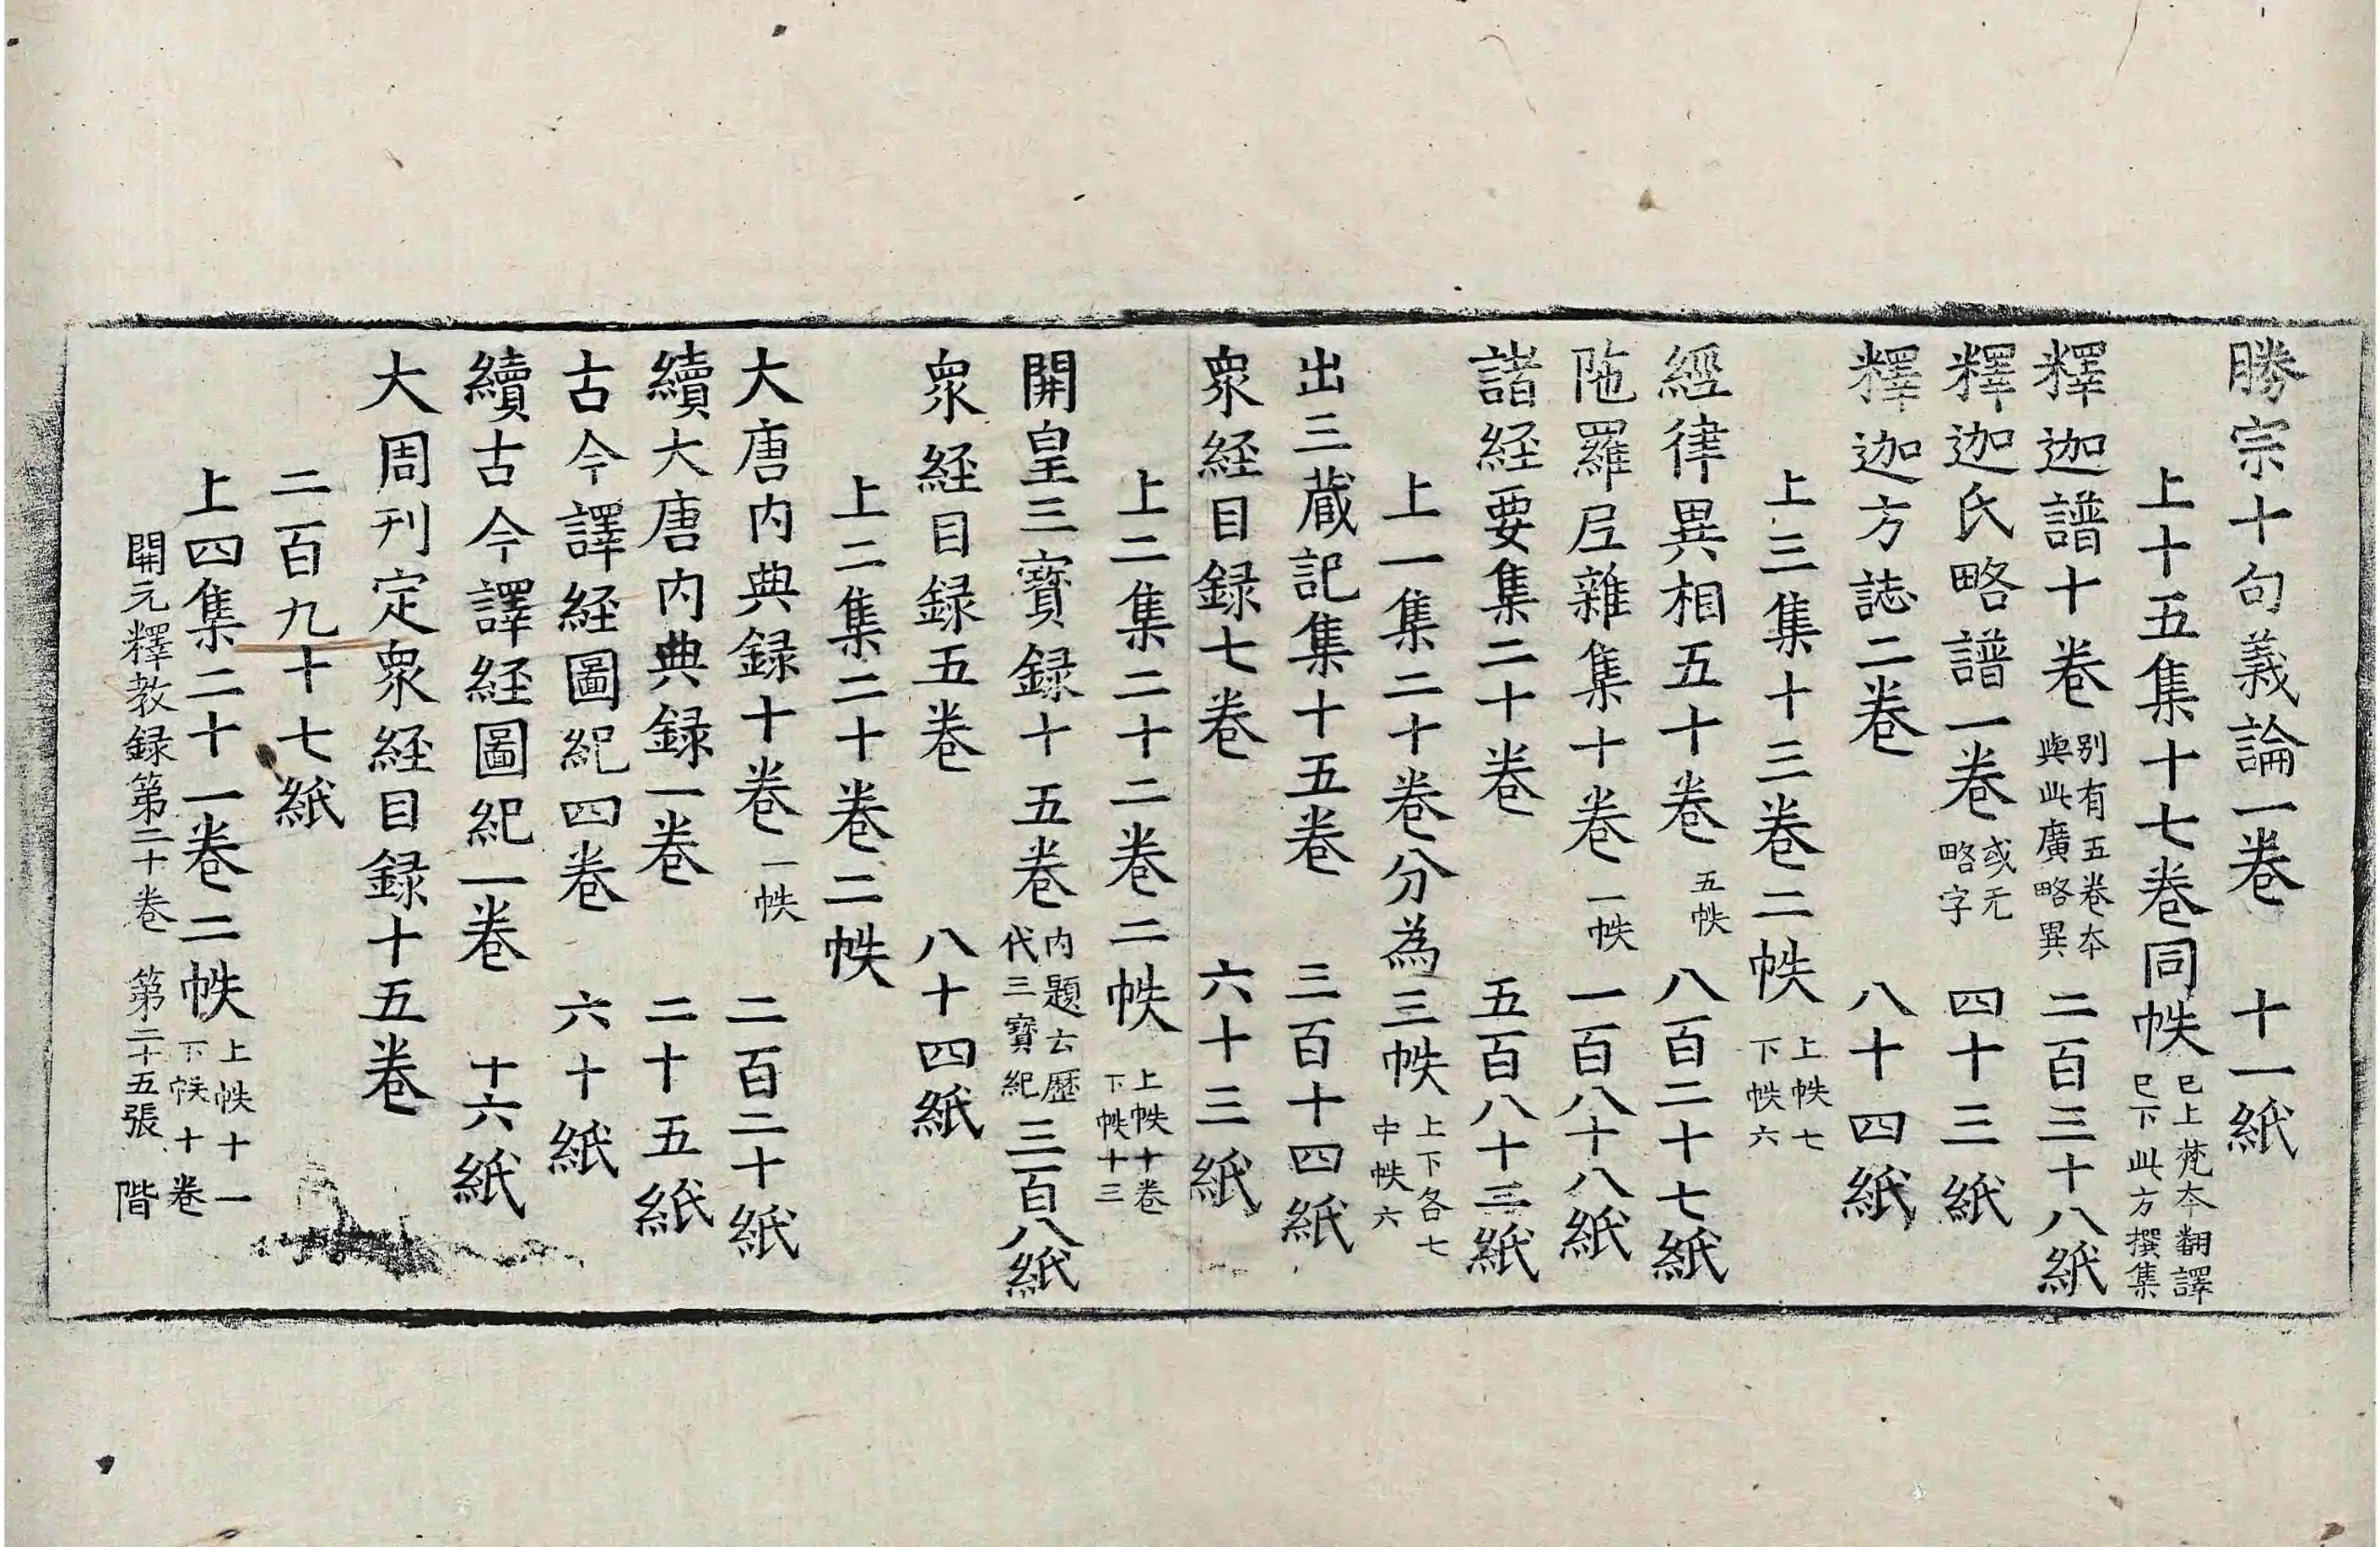 勝宗十句義論一卷　十一紙
上十五集十七卷同帙 已上梵本翻譯 已下此方撰集
釋迦譜十卷 别有五卷本 與此廣略異 二百三十八紙
釋迦氏略譜一卷 或无 略字 四十三紙
釋迦方誌二卷　八十四紙
上三集十三卷二帙 上帙七 下帙六
經律異相五十卷 五帙 八百二十七紙
陁羅尼雜集十卷 一帙 一百八十八紙
諸経要集二十卷　五百八十三紙
上一集二十卷分為三帙 上下各七 中帙六
出三蔵記集十五卷　三百十四紙
衆経目録七卷　六十三紙
上二集二十二卷二帙 上帙十卷 下帙十三
開皇三寶録十五卷 内題云歷 代三寶紀 三百八紙
衆経目録五卷　八十四紙
上二集二十卷二帙
大唐内典録十卷 一帙 二百二十紙
續大唐内典録一卷　二十五紙
古今譯経圖紀四卷　六十紙
續古今譯経圖紀一卷　十六紙
大周刊定衆経目録十五卷
二百九十七紙
上四集二十一卷二帙 上帙十一 下帙十卷
開元釋教録第二十卷　第二十五張　階